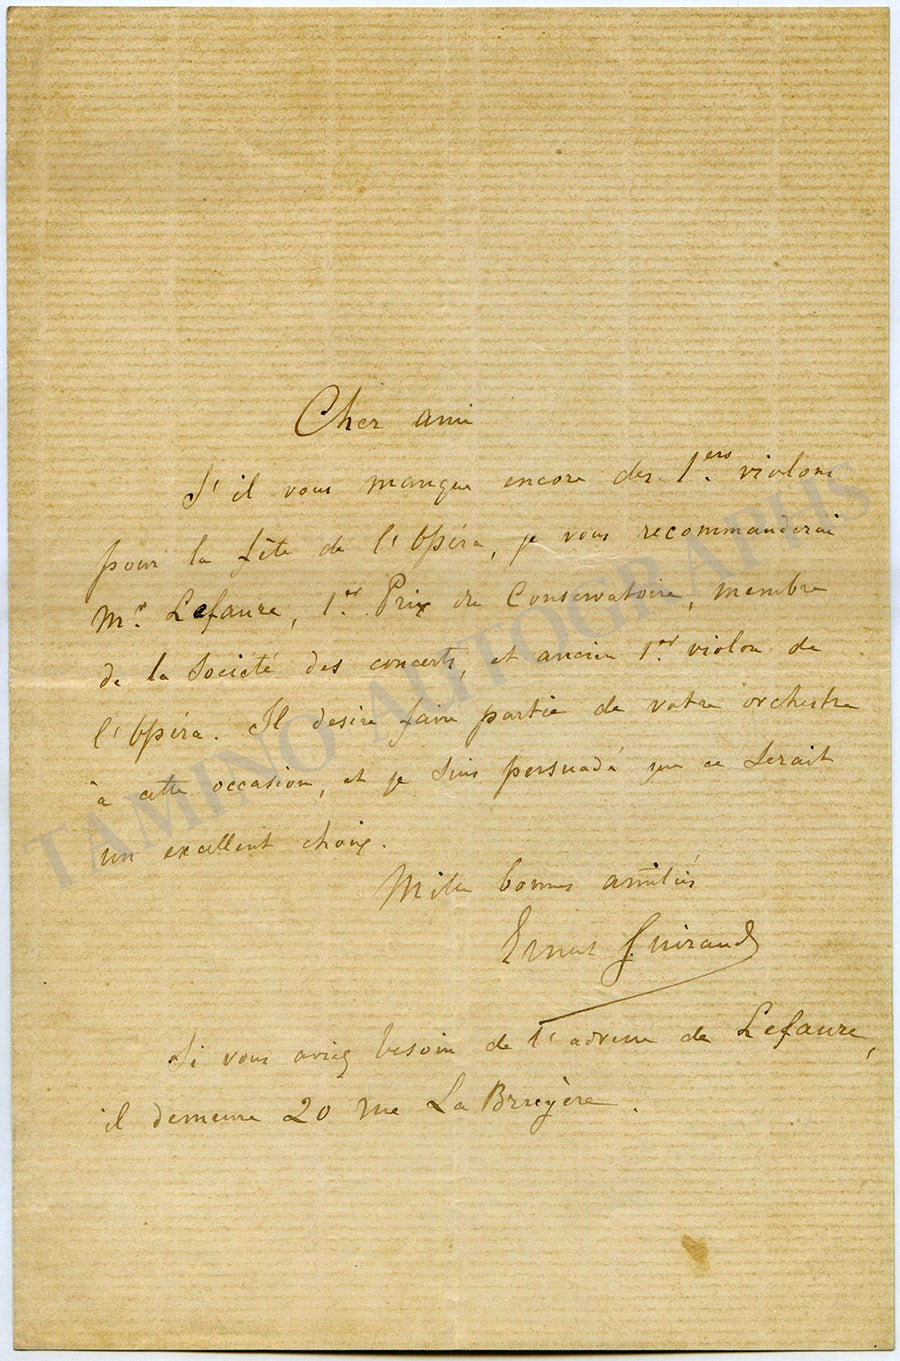 Cher ami
S'il vous manque encore des 1ers violons
pour la fête de l'Opéra, je vous recommanderai
Mr. Lefaure, 1er Prix du Conservatoire, membre
de la Société des concerts, et ancien 1er violon de
l'Opéra. Il desire faire partie de votre orchestre
à cette occasion, et je suis persuadé que ce serait
un excellent choix.
Mille bonnes amitiés
Ernest Guiraud
Si vous aviez besoin de l'adresse de Lefaure,
il demeure 20 rue La Bruyère.
TAMINO AUTOGRAPHS